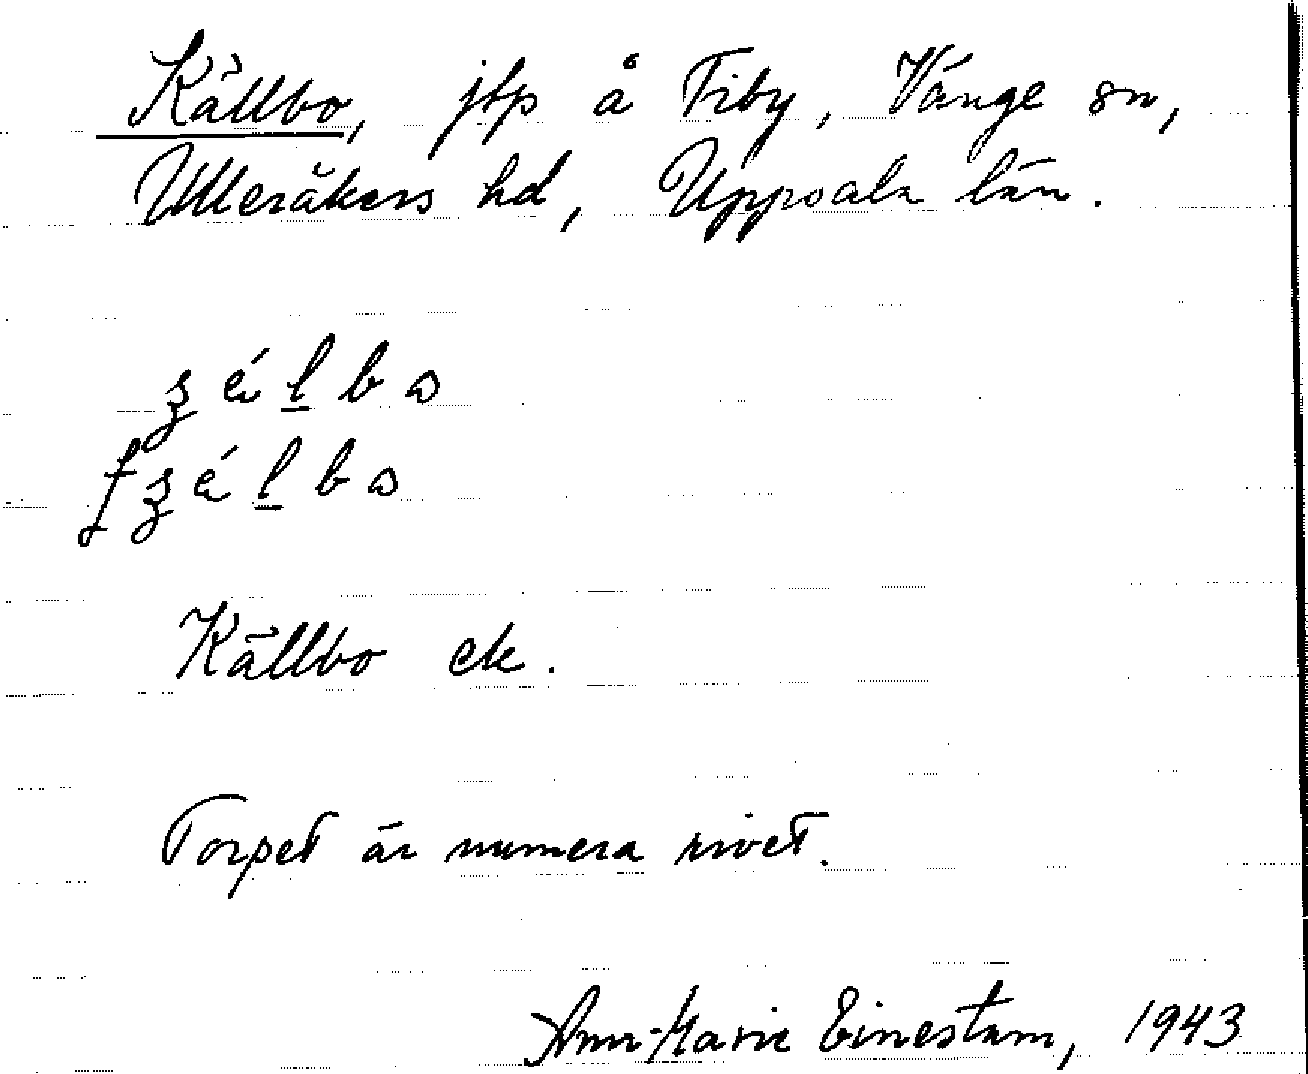 Källbo, jfp å Fiby, Vänge sn,
Ulleråkers hd, Uppsala län.
Källbo ek.
Torpet är numera rivet.
Ann-Marie Einestam, 1943